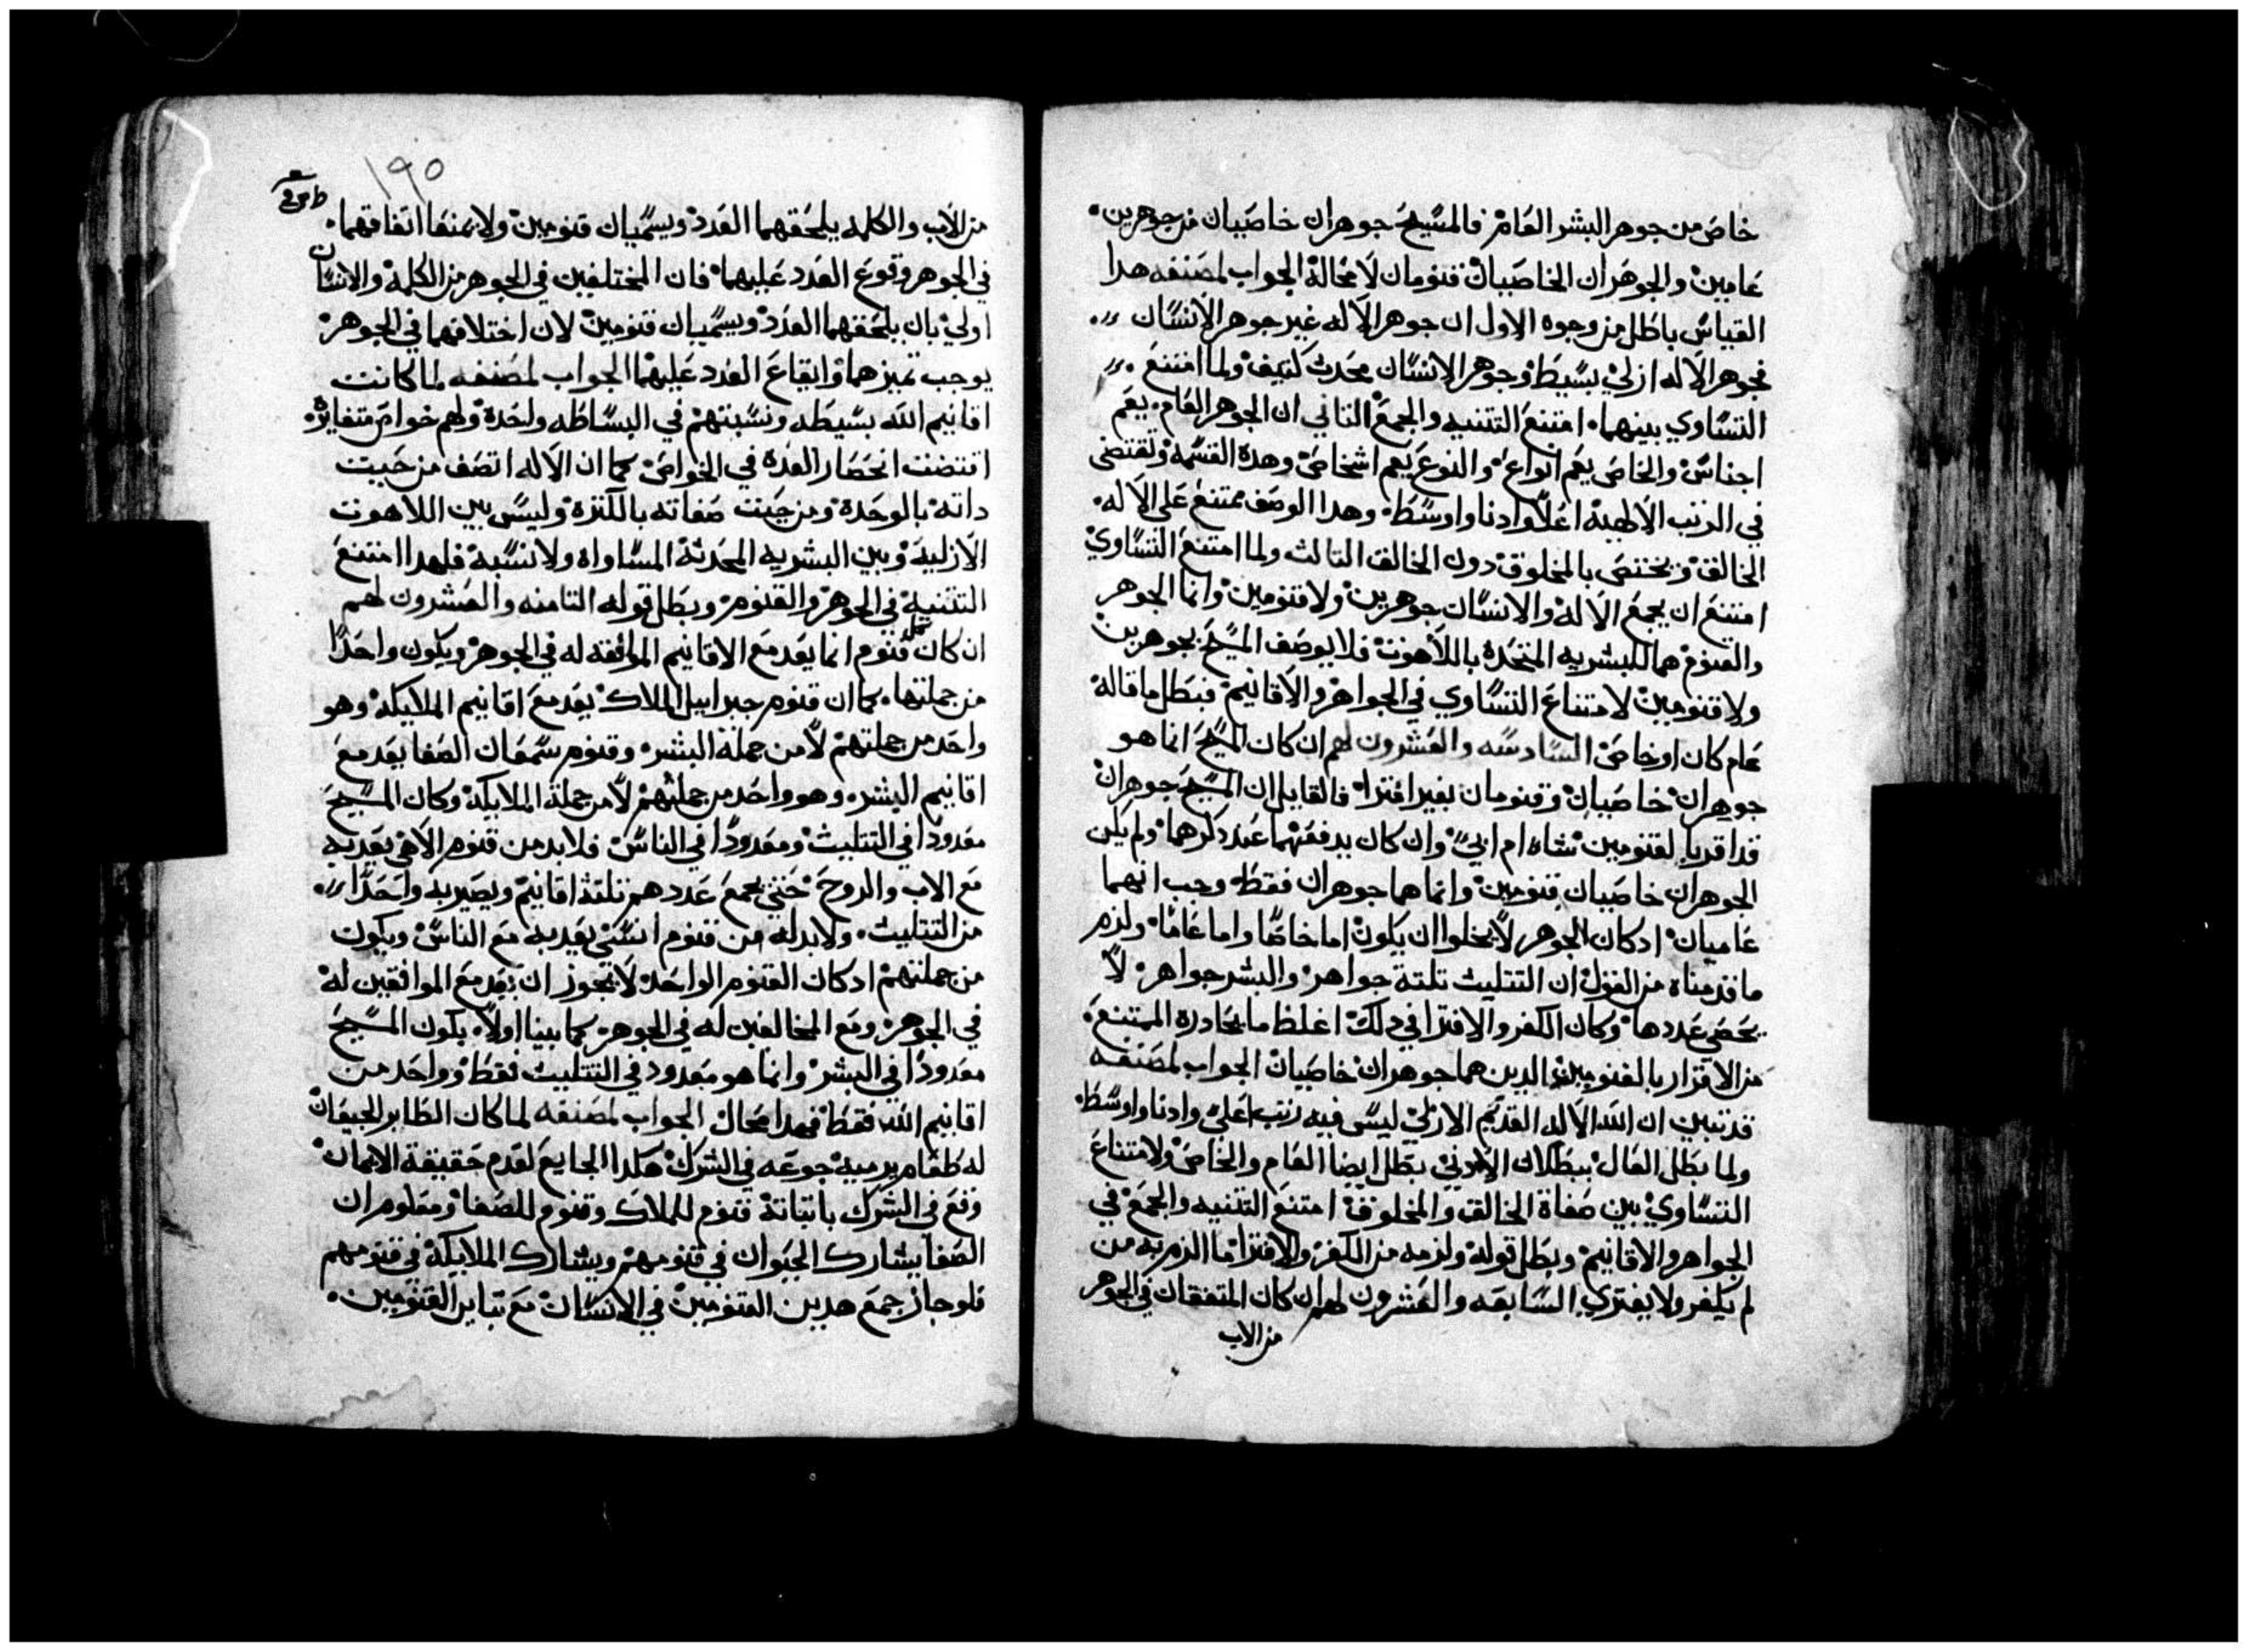 خاص من جوهر البشر العام فالمسيح جوهران خاصيان من جوهرين
عامين والجوهران الخاصيان قنومان لا محالة الجواب لمصنفه هدا
القياس باطل من وجوه الاول ان جوهر الاله غير جوهر الانسان
فجوهر الاله ازلي بسيط وجوهر الانسان محدث كتيف ولما امتنع
التساوي بينهما امتنع التتنيه والجمع التاني ان الجوهر العام يعم
اجناس والخاص يعم انواع والنوع يعم اشخاص وهده القسمه وتقتضي
في الرتب الالهية اعلا وادنا واوسط وهدا الوصف ممتنع على الاله
الخالق ويختص بالمخلوق دون الخالق التالت ولما امتنع التساوي
امتنع ان يجمع الاله والانسان جوهرين ولا قنومين وانما الجوهر
والقنوم هما للبشريه المتحدة باللاهوت فلا يوصف المسيح بجوهرين
ولا قنومين لامتناع التساوي في الجواهر والاقانيم فبطل ما قاله
عام كان او خاص السادسه والعشرون لهم ان كان المسيح انما هو
جوهران خاصيان وقنومان بغير افترا فالقايل ان المسيح جوهران
قد اقر بالقنومين شاء ام ابي وان كان يدفعهما عند دكرهما ولم يكن
الجوهران خاصيان قنومين وانما هما جوهران فقط وجب انهما
عاميان ادكان الجوهر لا يخلوا ان يكون اما خاصا واما عاما ولزم
ما قدمناه من القول ان التتليت تلتة جواهر والبشر جواهر لا
يحصي عددها وكان الكفر والافترا في دلك اغلظ ما يحادره الممتنع
من الاقرار بالقنومين الدين هما جوهران خاصيان الجواب لمصنفه
قد تبين ان الله الاله القديم الازلي ليس فيه رتب اعلي وادنا واوسط
ولما بطل العال ببطلان الادني بطل ايضا العام والخاص ولامتناع
التساوي بين صفاة الخالق والمخلوق امتنع التتنيه والجمع في
الجواهر والاقانيم وبطل قوله ولزمه من الكفر والافترا ما الزم به من
لم يكفر ولا يفتري السابعه والعشرون لهم ان كان المتفقان في الجوهر
من الاب
١٩٥
من الاب والكلمه يلحقهما العدد ويسميان قنومين ولا يمنعا اتفاقهما
في الجوهر وقوع العدد عليهما فان المختلفين في الجوهر من الكلمة والانسان
اولي بان يلحقهما العدد ويسميان قنومين لان اختلافهما في الجوهر
يوجب تميزهما وايقاع العدد عليهما الجواب لمصنفه لما كانت
اقانيم الله بسيطه ونسبتهم في البساطه واحدة ولهم خواص متغايرة
اقتضت انحصار العدة في الخواص كما ان الاله اتصف من حيت
داته بالوحدة ومن حيت صفاته بالكترة وليس بين اللاهوت
الازلية وبين البشريه المحدتة المساواه ولا نسبة فلهدا امتنع
التتنية في الجوهر والقنوم وبطل قوله التامنه والعشرون لهم
ان كان كل قنوم انما يعد مع الاقانيم الموافقه له في الجوهر ويكون واحدا
من جملتها كما ان قنوم جبراييل الملاك يعد مع اقانيم الملايكة وهو
واحد من جملتهم لا من جملة البشر وقنوم سمعان الصفا يعد مع
اقانيم البشر وهو واحد من جملتهم لا من جملة الملايكة وكان المسيح
معدودا في التتليت ومعدودا في الناس فلا بد من قنوم الاهي يعد به
مع الاب والروح حتي يجمع عددهم تلتة اقانيم ويصير به واحدا
من التتليت ولا بد له من قنوم انسي يعد به مع الناس ويكون
من جملتهم ادكان القنوم الواحد لا يجوز ان يعد مع الموافقين له
في الجوهر ومع المخالفين له في الجوهر كما بينا اولا يكون المسيح
معدودا في البشر وانما هو معدود في التتليت فقط وواحد من
اقانيم الله فقط فهدا محال الجواب لمصنفه لما كان الطاير الجيعان
له طعام يرميه جوعه في الشرك هكدا الجايع لعدم حقيقة الايمان
وقع في الشرك باتباتة قنوم للملاك وقنوم للصفا ومعلوم ان
الصفا يشارك الحيوان في قنومهم ويشارك الملايكة في قنومهم
فلو جاز جمع هدين القنومين في الانسان مع تباين القنومين